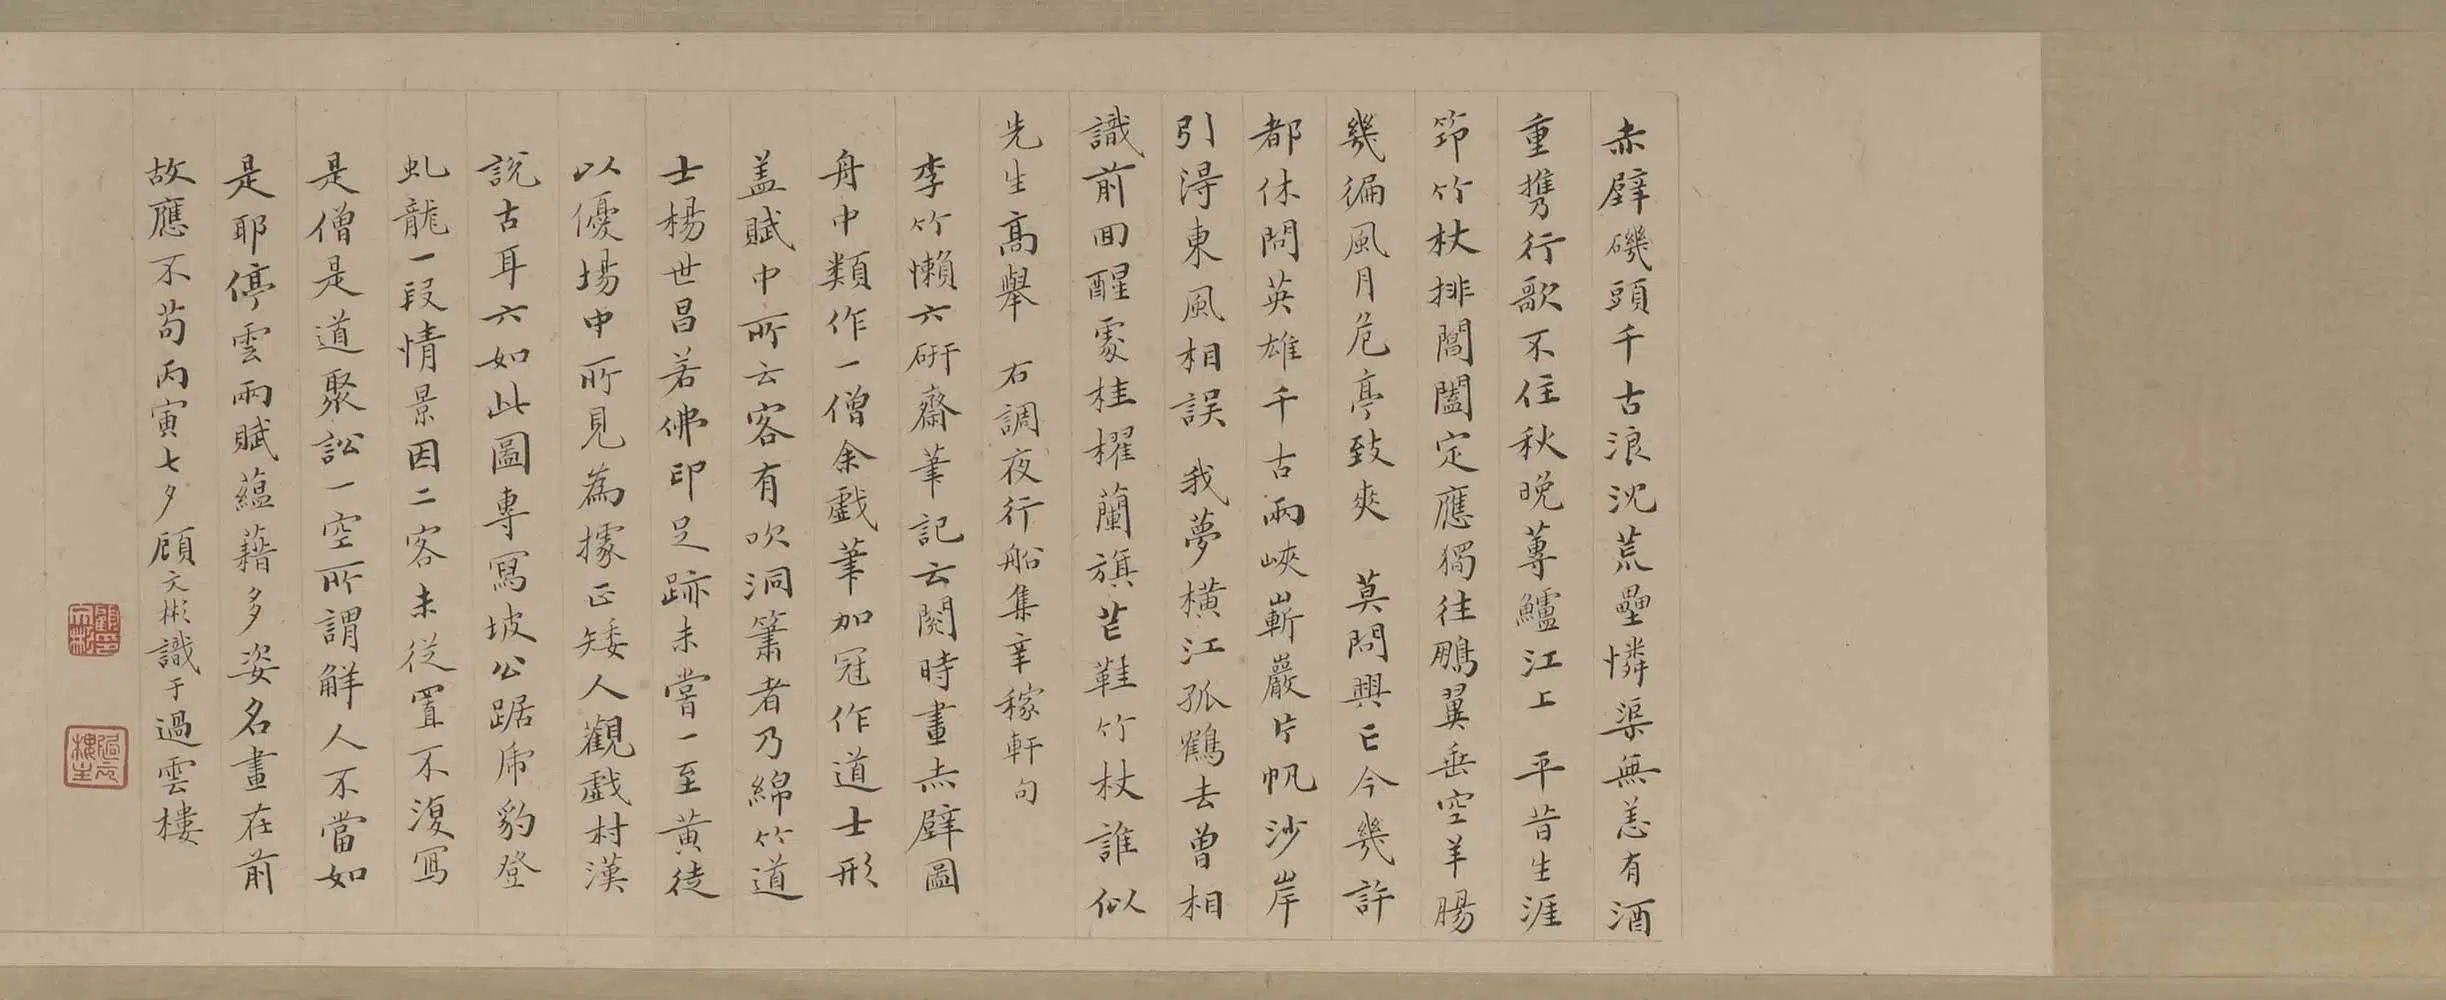 赤壁磯頭千古浪沈荒壘憐渠無恙有酒
重攜行歌不住秋晚蓴鱸江上　平昔生涯
笻竹杖排閶闔定應獨往鵬翼垂空羊腸
幾徧風月危亭致爽　莫問興亡今幾許
都休問英雄千古兩峽嶄巖片帆沙岸
引得東風相誤　我夢橫江孤鶴去曾相
識前回醒處桂櫂蘭旗芒鞋竹杖誰似
先生高舉　右調夜行船集辛稼軒句
李竹懶六研齋筆記云閱時畫赤壁圖
舟中類作一僧余戲筆加冠作道士形
盖賦中所云客有吹洞簫者乃綿竹道
士楊世昌若佛印足跡未嘗一至黃徒
以優場中所見為據正矮人觀戲村漢
說古耳六如此圖專寫坡公踞虎豹登
虬龍一段情景因二客未從置不復寫
是僧是道聚訟一空所謂解人不當如
是耶停雲兩賦蘊藉多姿名畫在前
故應不苟丙寅七夕顧文彬識于過雲樓
顧文彬印
過雲樓主